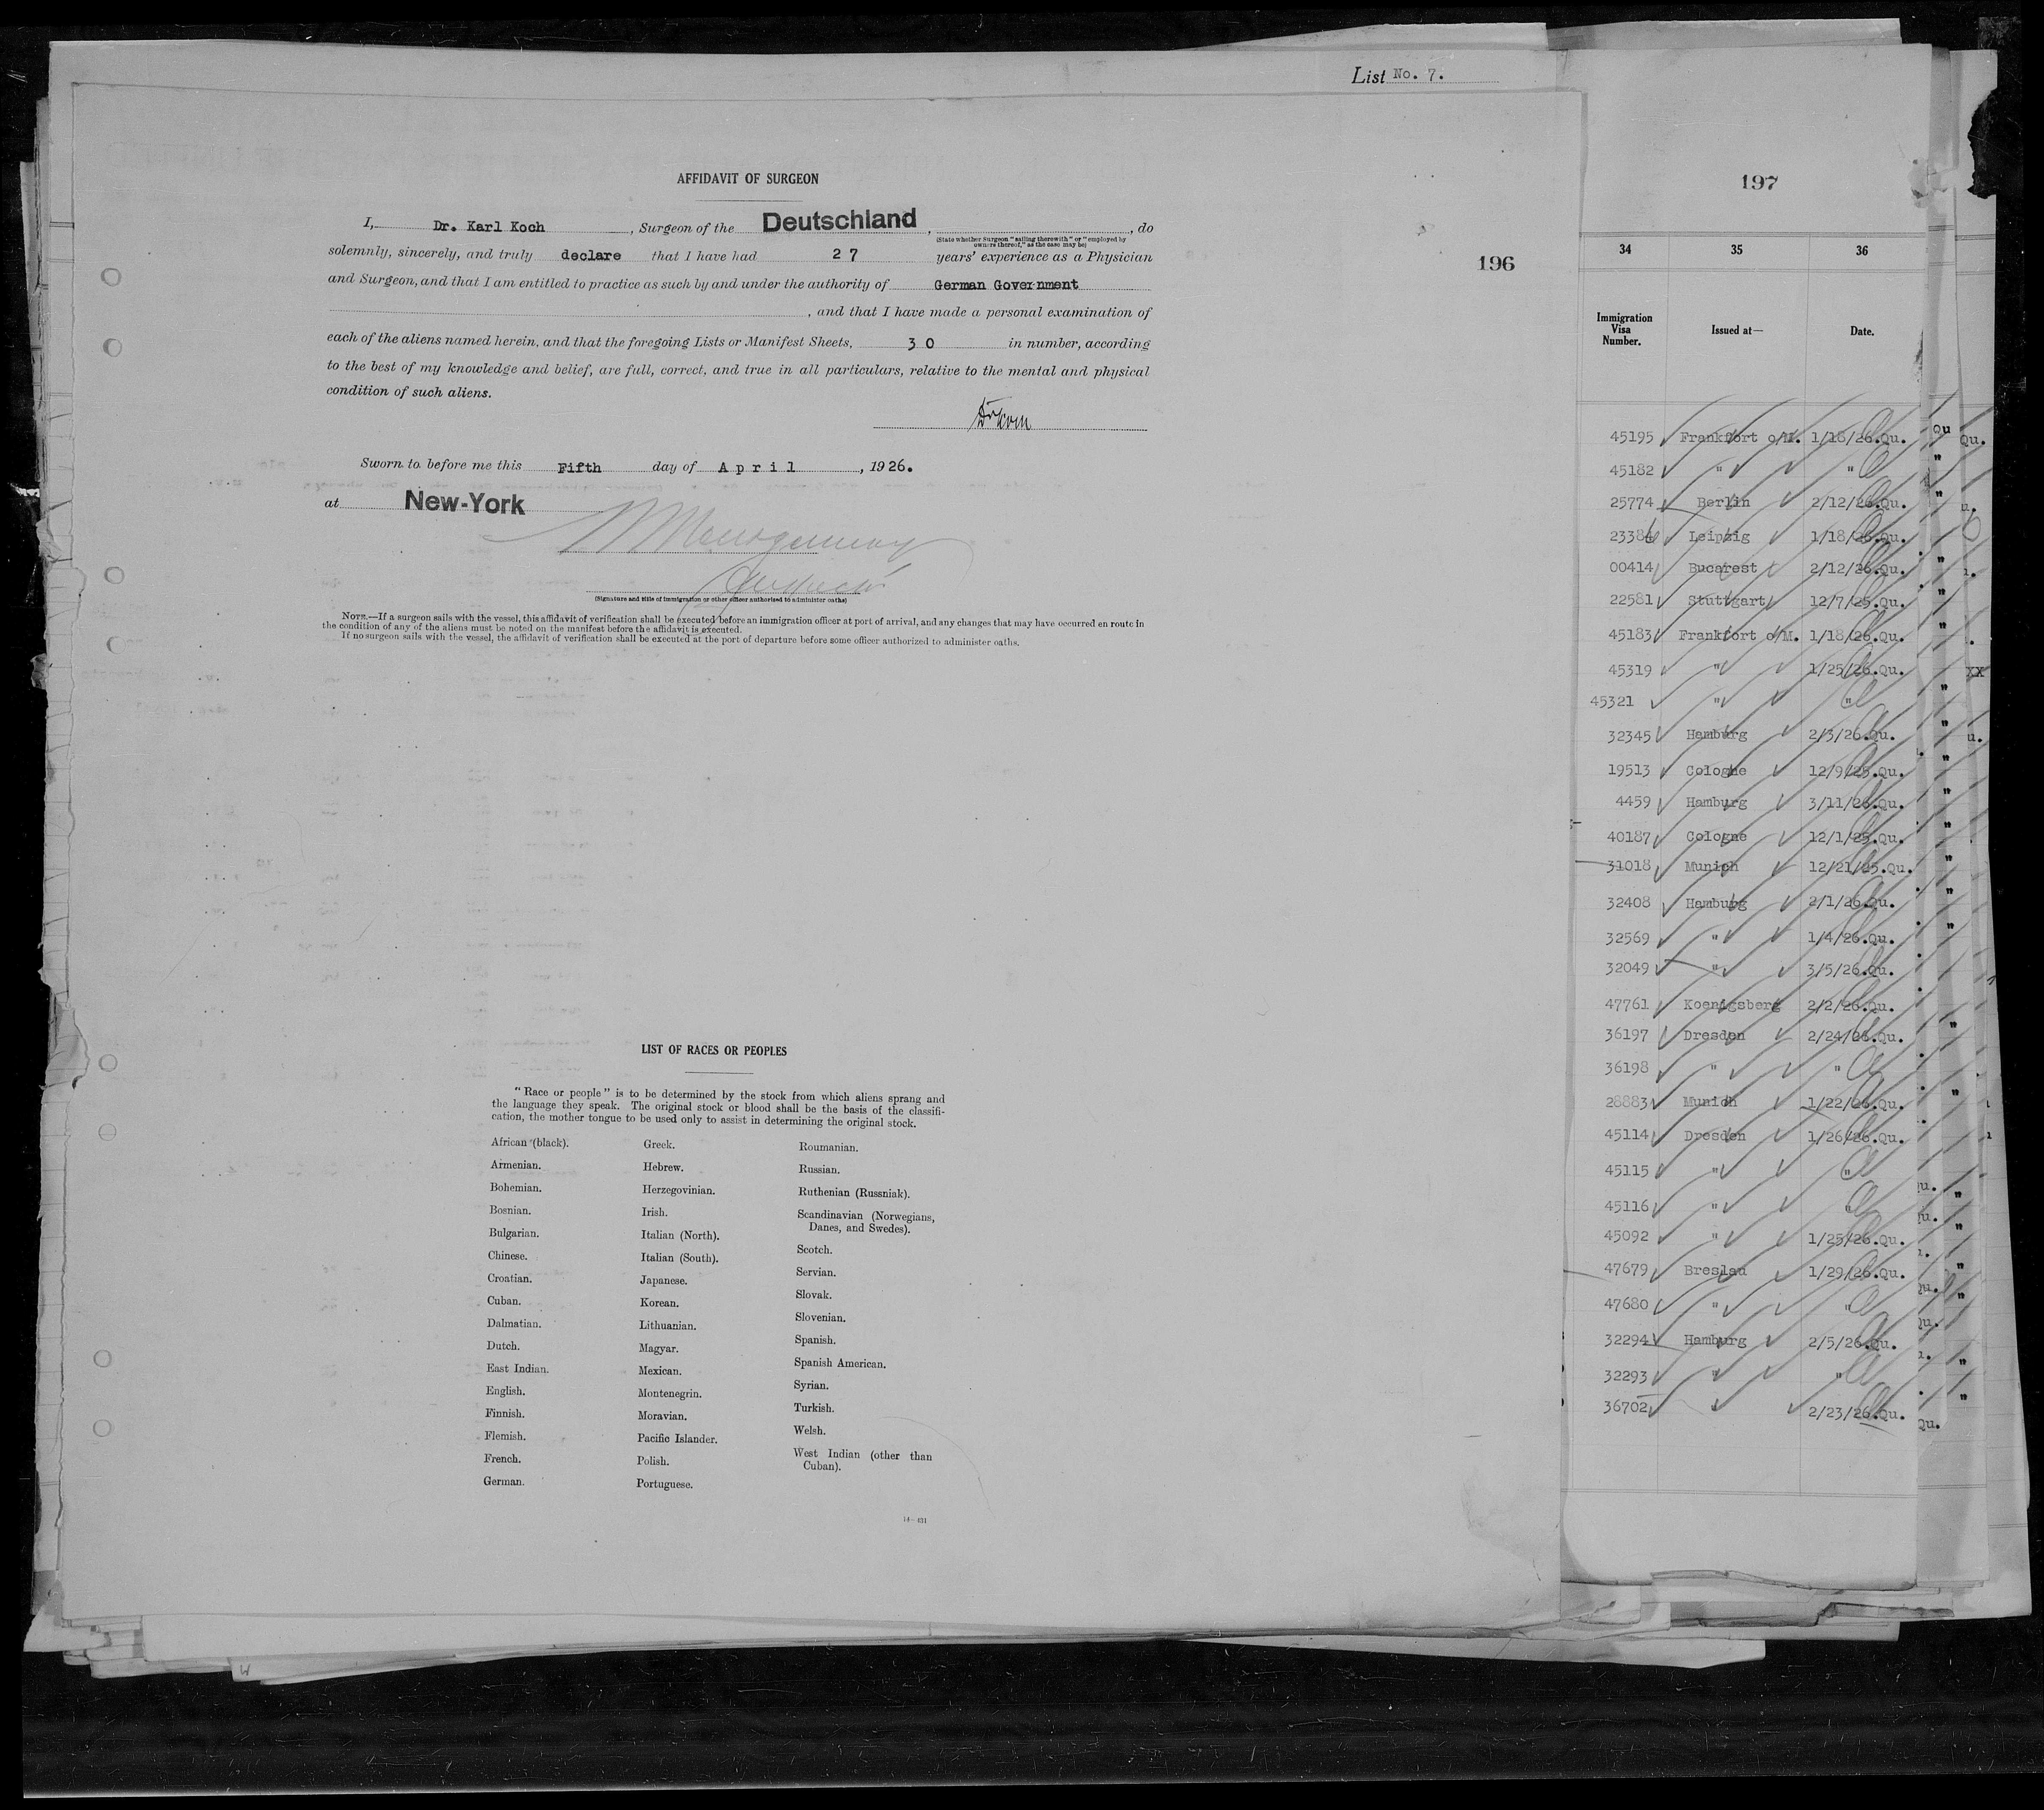 List No. 7.
AFFIDAVIT OF SURGEON
I, Dr. Karl Koch, Surgeon of the Deutschland, , do
(State whether Surgeon "sailing therewith" or "employed by
owners thereof," as the case may be)
solemnly, sincerely, and truly declare that I have had 27 years' experience as a Physician
and Surgeon, and that I am entitled to practice as such by and under the authority of German Government
, and that I have made a personal examination of
each of the aliens named herein, and that the foregoing Lists or Manifest Sheets, 30 in number, according
to the best of my knowledge and belief, are full, correct, and true in all particulars, relative to the mental and physical
condition of such aliens.
Sworn to before me this Fifth day of April, 1926.
at New-York
Montgomery
Inspector
(Signature and title of immigration or other officer authorized to administer oaths)
NOTE.—If a surgeon sails with the vessel, this affidavit of verification shall be executed before an immigration officer at port of arrival, and any changes that may have occurred en route in
the condition of any of the aliens must be noted on the manifest before the affidavit is executed.
If no surgeon sails with the vessel, the affidavit of verification shall be executed at the port of departure before some officer authorized to administer oaths.
196
LIST OF RACES OR PEOPLES
"Race or people" is to be determined by the stock from which aliens sprang and
the language they speak. The original stock or blood shall be the basis of the classifi-
cation, the mother tongue to be used only to assist in determining the original stock.
African (black).
Armenian.
Bohemian.
Bosnian.
Bulgarian.
Chinese.
Croatian.
Cuban.
Dalmatian.
Dutch.
East Indian.
English.
Finnish.
Flemish.
French.
German.
Greek.
Hebrew.
Herzegovinian.
Irish.
Italian (North).
Italian (South).
Japanese.
Korean.
Lithuanian.
Magyar.
Mexican.
Montenegrin.
Moravian.
Pacific Islander.
Polish.
Portuguese.
Roumanian.
Russian.
Ruthenian (Russniak).
Scandinavian (Norwegians,
Danes, and Swedes).
Scotch.
Servian.
Slovak.
Slovenian.
Spanish.
Spanish American.
Syrian.
Turkish.
Welsh.
West Indian (other than
Cuban).
14—431
197
34 35 36
Immigration
Visa
Number.
Issued at—
Date.
45195 Frankfort o/M. 1/18/26.Qu.
45182 " "
25774 Berlin 2/12/26.Qu.
23386 Leipzig 1/18/26.Qu.
00414 Bucarest 2/12/26.Qu.
22581 Stuttgart 12/7/25.Qu.
45183 Frankfort o/M. 1/18/26.Qu.
45319 " 1/25/26.Qu.
45321 " "
32345 Hamburg 2/3/26.Qu.
19513 Cologne 12/9/25.Qu.
4459 Hamburg 3/11/26.Qu.
40187 Cologne 12/1/25.Qu.
31018 Munich 12/21/25.Qu.
32408 Hamburg 2/1/26.Qu.
32569 " 1/4/26.Qu.
32049 " 3/5/26.Qu.
47761 Koenigsberg 2/2/26.Qu.
36197 Dresden 2/24/26.Qu.
36198 " "
28883 Munich 1/22/26.Qu.
45114 Dresden 1/26/26.Qu.
45115 " "
45116 " "
45092 " 1/25/26.Qu.
47679 Breslau 1/29/26.Qu.
47680 " "
32294 Hamburg 2/5/26.Qu.
32293 " "
36702 2/23/26.Qu.